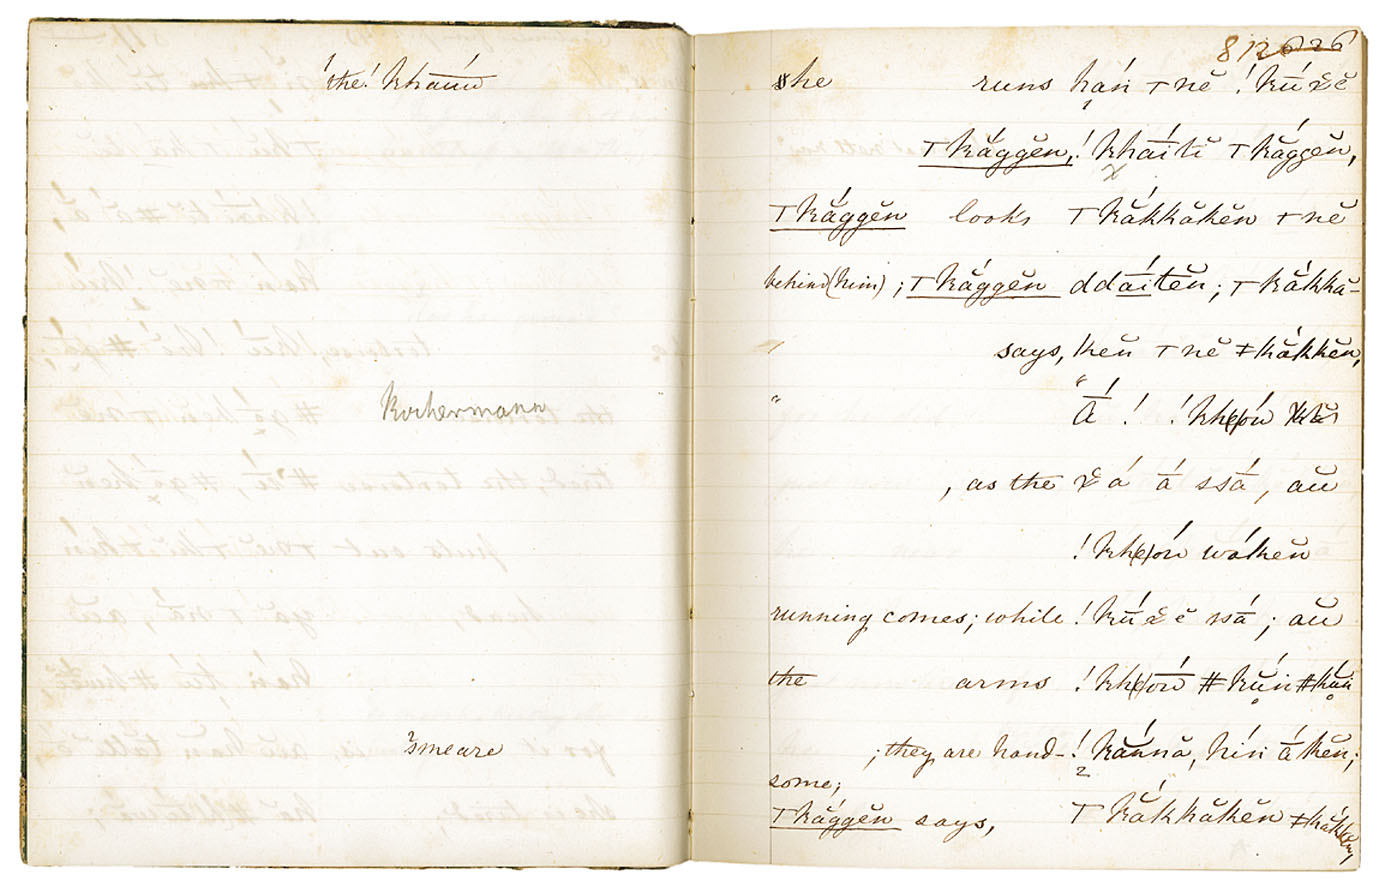 the! khauu
Kochermann
smeare
812 626
she runs hań ⊤nĕ !kúχĕ
⊤kăggĕn, !khāitĕ ⊤kăggĕn,
⊤kăggĕn looks ⊤kăkkăkĕn ⊤nĕ
behind (him); ⊤kăggĕn ddāítĕn; ⊤kăkkă-
" says, kĕn ⊤nĕ ǂkăkkĕn,
" " Ā́! !kh(e)óń
, as the χá ā́ ssā́, aŭ
!kh(e)óń wáken
running comes; while !kúχĕ ssā́; aŭ
the arms !khóń
; they are hand- !kánnă, hiń ā́kĕn;
some;
⊤kăggĕn says, ⊤kăkkăkĕn ǂkăkkĕn,